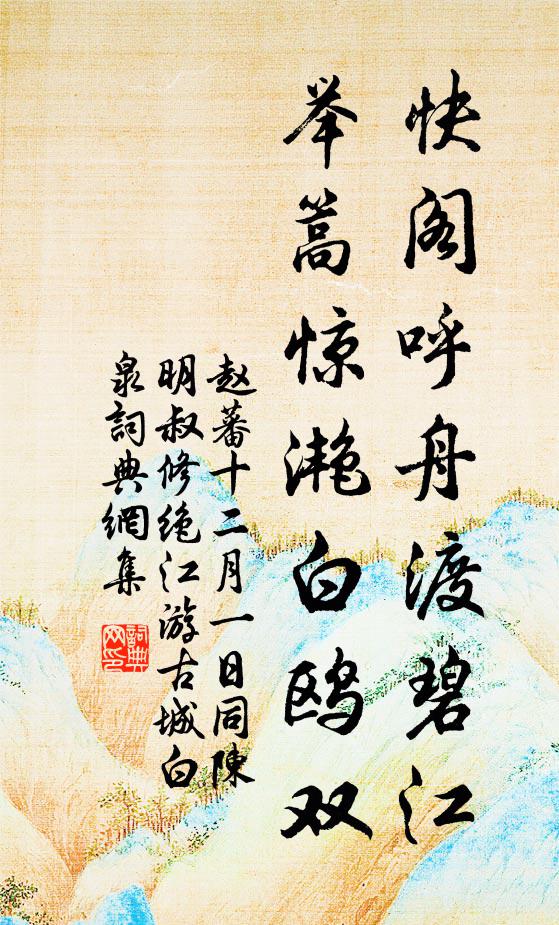 快阁呼舟渡碧江
举篙惊滟白鸥双
赵蕃十二月一日同陳
明叔修绝江游古城白
泉詞典網集
詞典網印